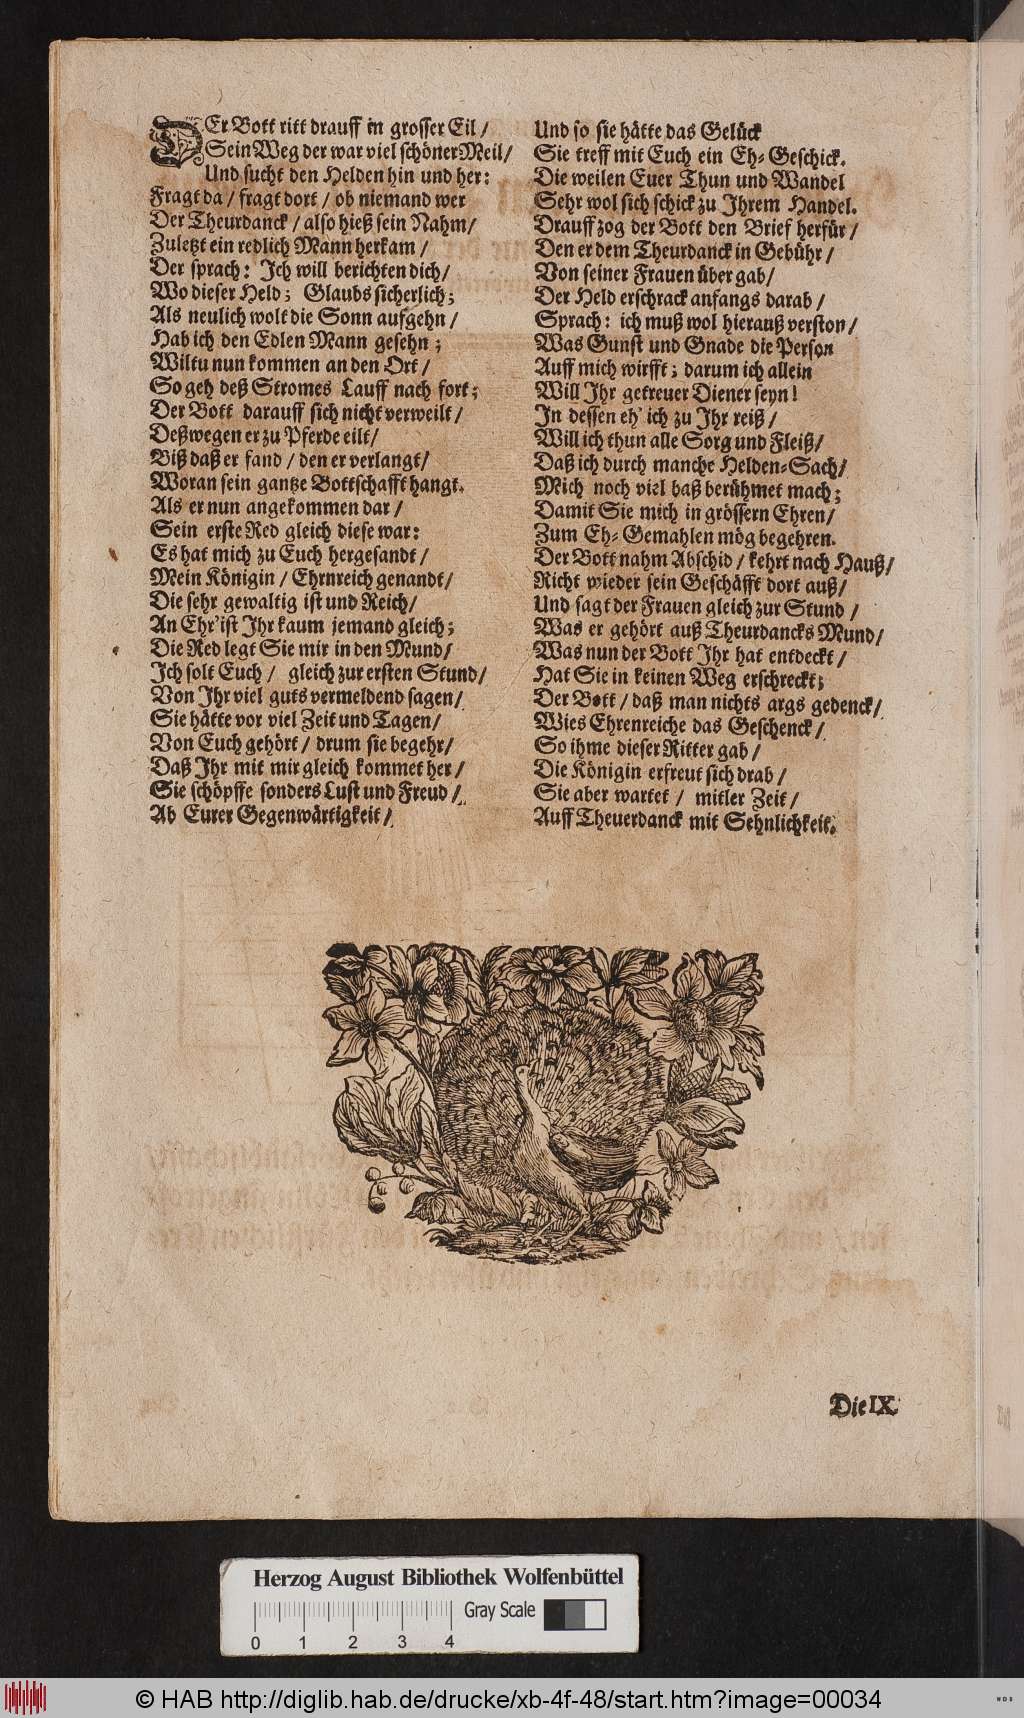 DEr Bott ritt drauff in grosser Eil /
Sein Weg der war viel schöner Meil/
Und sucht den Helden hin und her:
Fragt da / fragt dort / ob niemand wer
Der Theurdanck / also hieß sein Nahm/
Zuletzt ein redlich Mann herkam /
Der sprach: Ich will berichten dich/
Wo dieser Held; Glaubs sicherlich;
Als neulich wolt die Sonn aufgehn /
Hab ich den Edlen Mann gesehn;
Wiltu nun kommen an den Ort /
So geh deß Stromes Lauff nach fort;
Der Bott darauff sich nicht verweilt /
Deßwegen er zu Pferde eilt/
Biß daß er fand / den er verlangt/
Woran sein gantze Bottschafft hangt.
Als er nun angekommen dar /
Sein erste Red gleich diese war:
Es hat mich zu Euch hergesandt /
Mein Königin / Ehrnreich genandt/
Die sehr gewaltig ist und Reich/
An Ehr' ist Ihr kaum jemand gleich;
Die Red legt Sie mir in den Mund/
Ich solt Euch / gleich zur ersten Stund/
Von Ihr viel guts vermeldend sagen/
Sie hätte vor viel Zeit und Tagen/
Von Euch gehört / drum sie begehr/
Daß Ihr mit mir gleich kommet her /
Sie schöpffe sonders Lust und Freud /
Ab Eurer Gegenwärtigkeit /
Und so sie hätte das Gelück
Sie treff mit Euch ein Eh-Geschick.
Die weilen Euer Thun und Wandel
Sehr wol sich schick zu Ihrem Handel.
Drauff zog der Bott den Brief herfür /
Den er dem Theurdanck in Gebühr /
Von seiner Frauen über gab/
Der Held erschrack anfangs darab /
Sprach: ich muß wol hierauß verston /
Was Gunst und Gnade die Person
Auff mich wirfft; darum ich allein
Will Ihr getreuer Diener seyn!
In dessen eh' ich zu Ihr reiß /
Will ich thun alle Sorg und Fleiß/
Daß ich durch manche Helden-Sach/
Mich noch viel baß berühmet mach;
Damit Sie mich in grössern Ehren/
Zum Eh-Gemahlen mög begehren.
Der Bott nahm Abschid / kehrt nach Hauß/
Richt wieder sein Geschäfft dort auß/
Und sagt der Frauen gleich zur Stund /
Was er gehört auß Theurdancks Mund/
Was nun der Bott Ihr hat entdeckt /
Hat Sie in keinen Weg erschreckt;
Der Bott / daß man nichts args gedenck/
Wies Ehrenreiche das Geschenck /
So ihme dieser Ritter gab /
Die Königin erfreut sich drab /
Sie aber wartet / mitler Zeit /
Auff Theuerdanck mit Sehnlichkeit.
Die IX.
Herzog August Bibliothek Wolfenbüttel
Gray Scale
0 1 2 3 4
© HAB http://diglib.hab.de/drucke/xb-4f-48/start.htm?image=00034